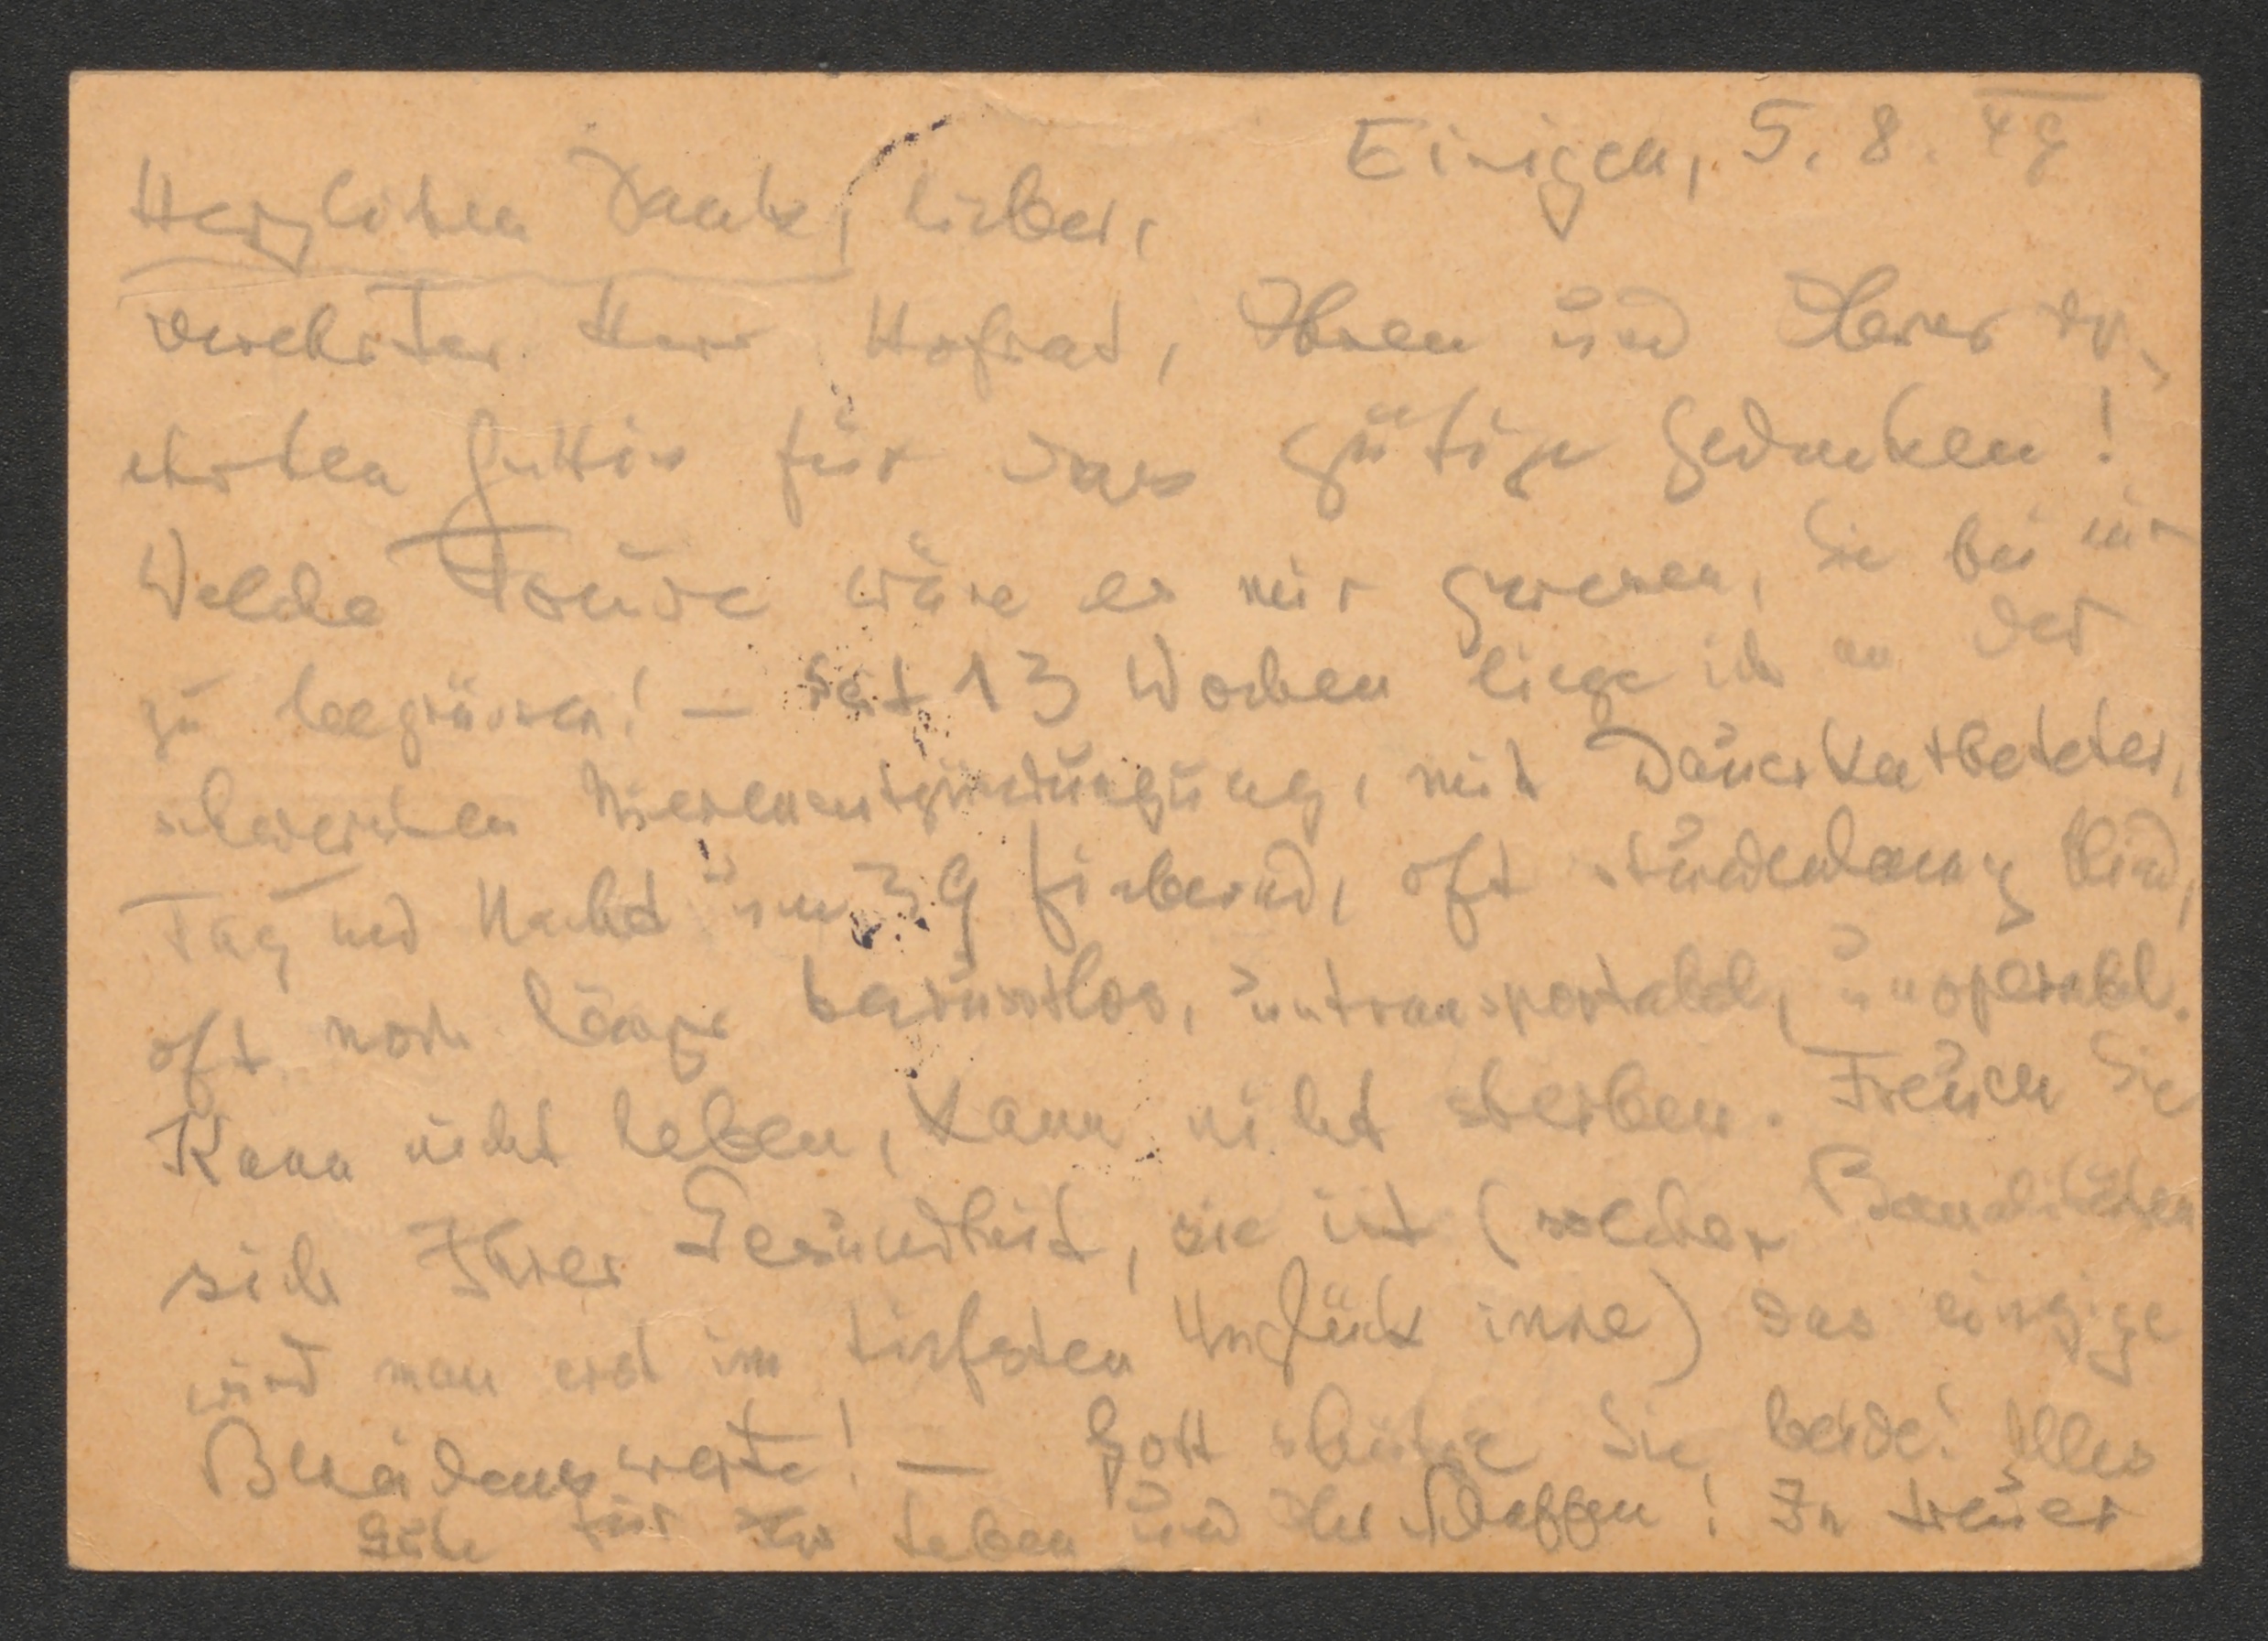 Einigen, 5. 8. 49
Herzlichen Dank, lieber,
verehrter Herr Hofrat, Ihnen und Ihrer ver-
ehrten Gattin für das gütige Gedenken!
Welche Freude wäre es mir gewesen, Sie bei mir
zu begrüssen! – Seit 13 Wochen liege ich an der
schwersten Nierenentzündung, mit
Tag und Nacht um 39 fiebernd, oft stundenlang blind,
oft noch länger bewusstlos, untransportabel, unoperabel.
Kann nicht leben, kann nicht sterben. Freuen Sie
sich Ihrer Gesundheit, sie ist (solcher
wird man erst im tiefsten Unglück inne) das einzige
Beneidenswerte! – Gott schütze Sie beide! Alles
Gute für Ihr Leben und Ihr Schaffen! In treuer